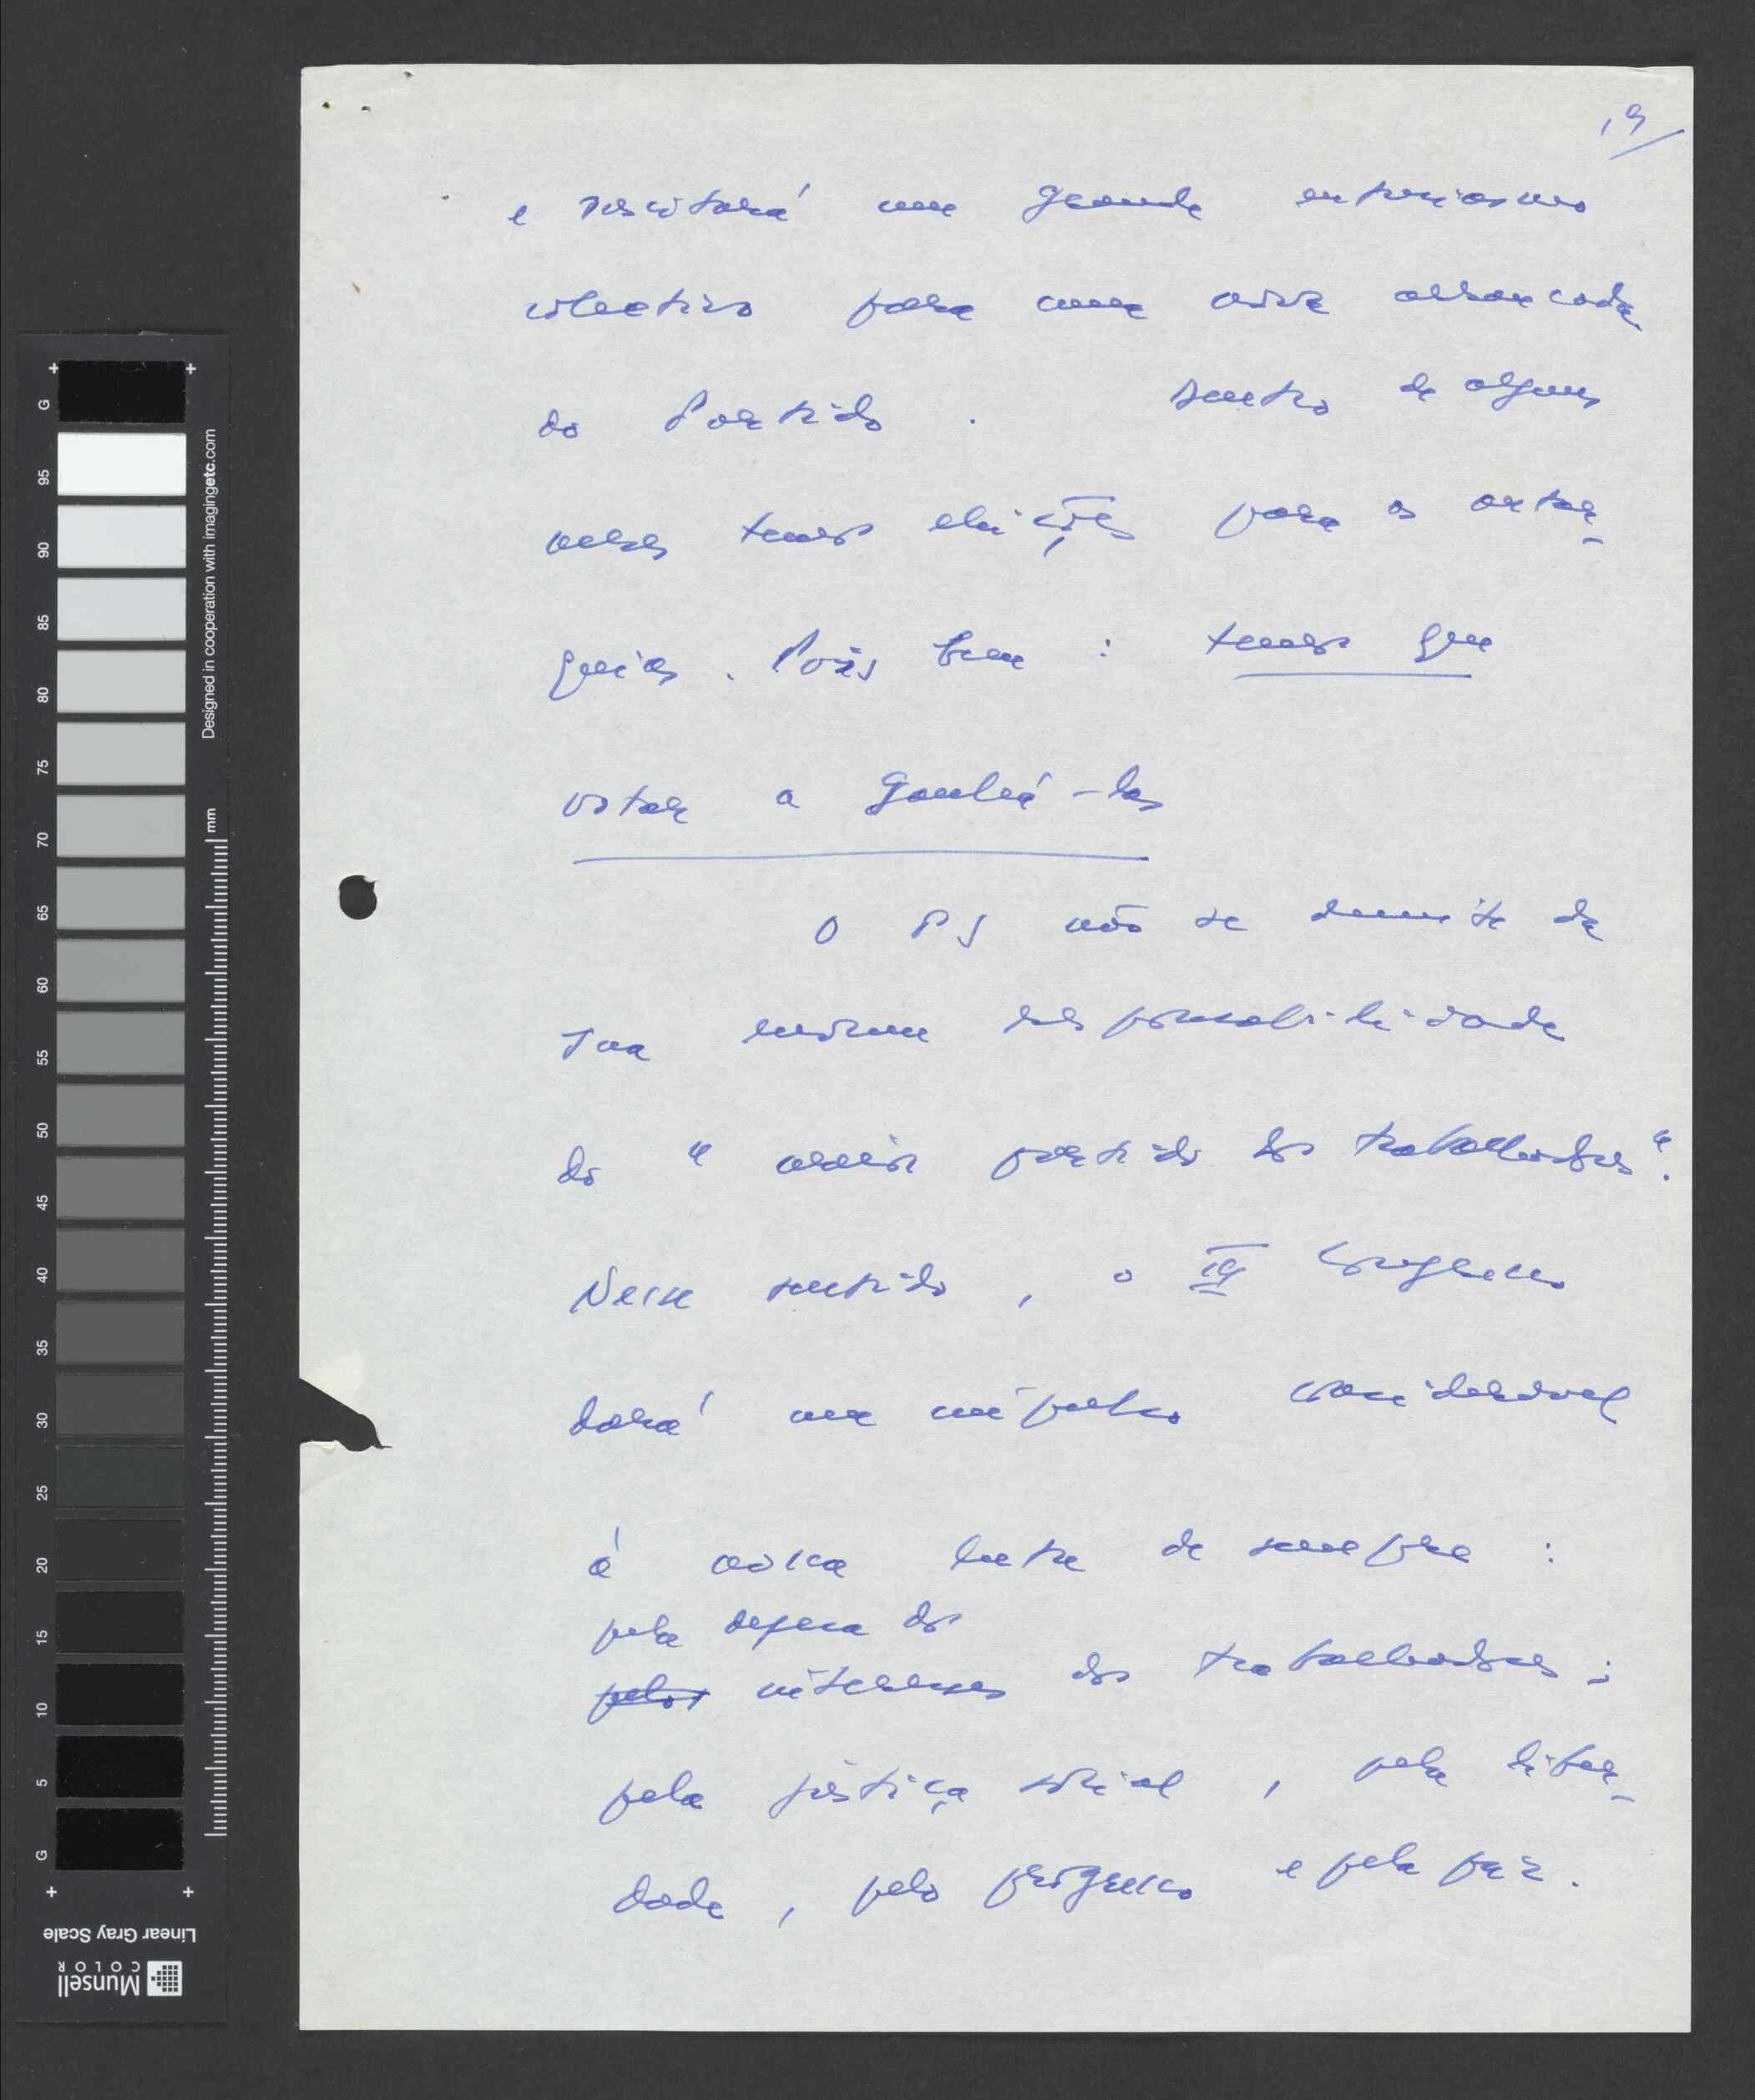 19
e suscitará um grande entusiasmo
colectivo para uma nova arrancada
do Partido. Dentro de alguns
meses temos eleições para as autar-
quias. Pois bem: temos que
voltar a ganhá-las
O PS não se demite da
sua enorme responsabilidade
do "maior partido dos trabalhadores".
Nesse sentido, o IV Congresso
dará um impulso considerável
à nossa luta de sempre:
pela defesa dos
pelos interesses dos trabalhadores;
pela justiça social, pela liber-
dade, pelo progresso e pela paz.
G
95
90
85
80
75
70
65
60
55
50
45
40
35
30
25
20
15
10
5
G
mm
Designed in cooperation with imagingetc.com
Linear Gray Scale
Munsell
COLOR